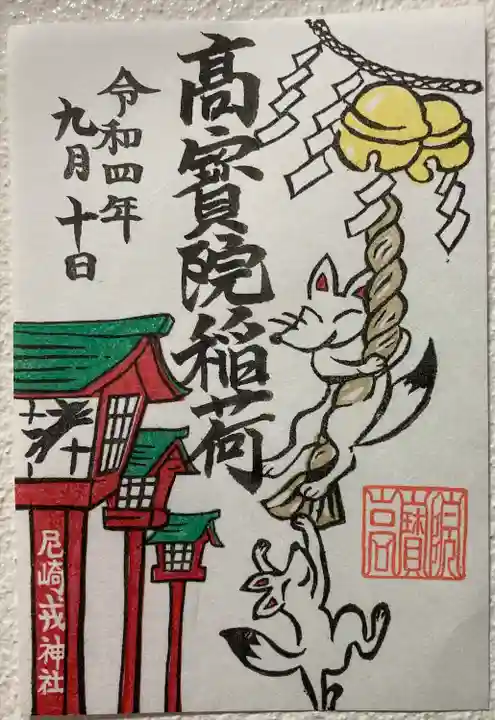 高寳院稲荷
令和四年
九月十日
尼崎戎神社
高寳院